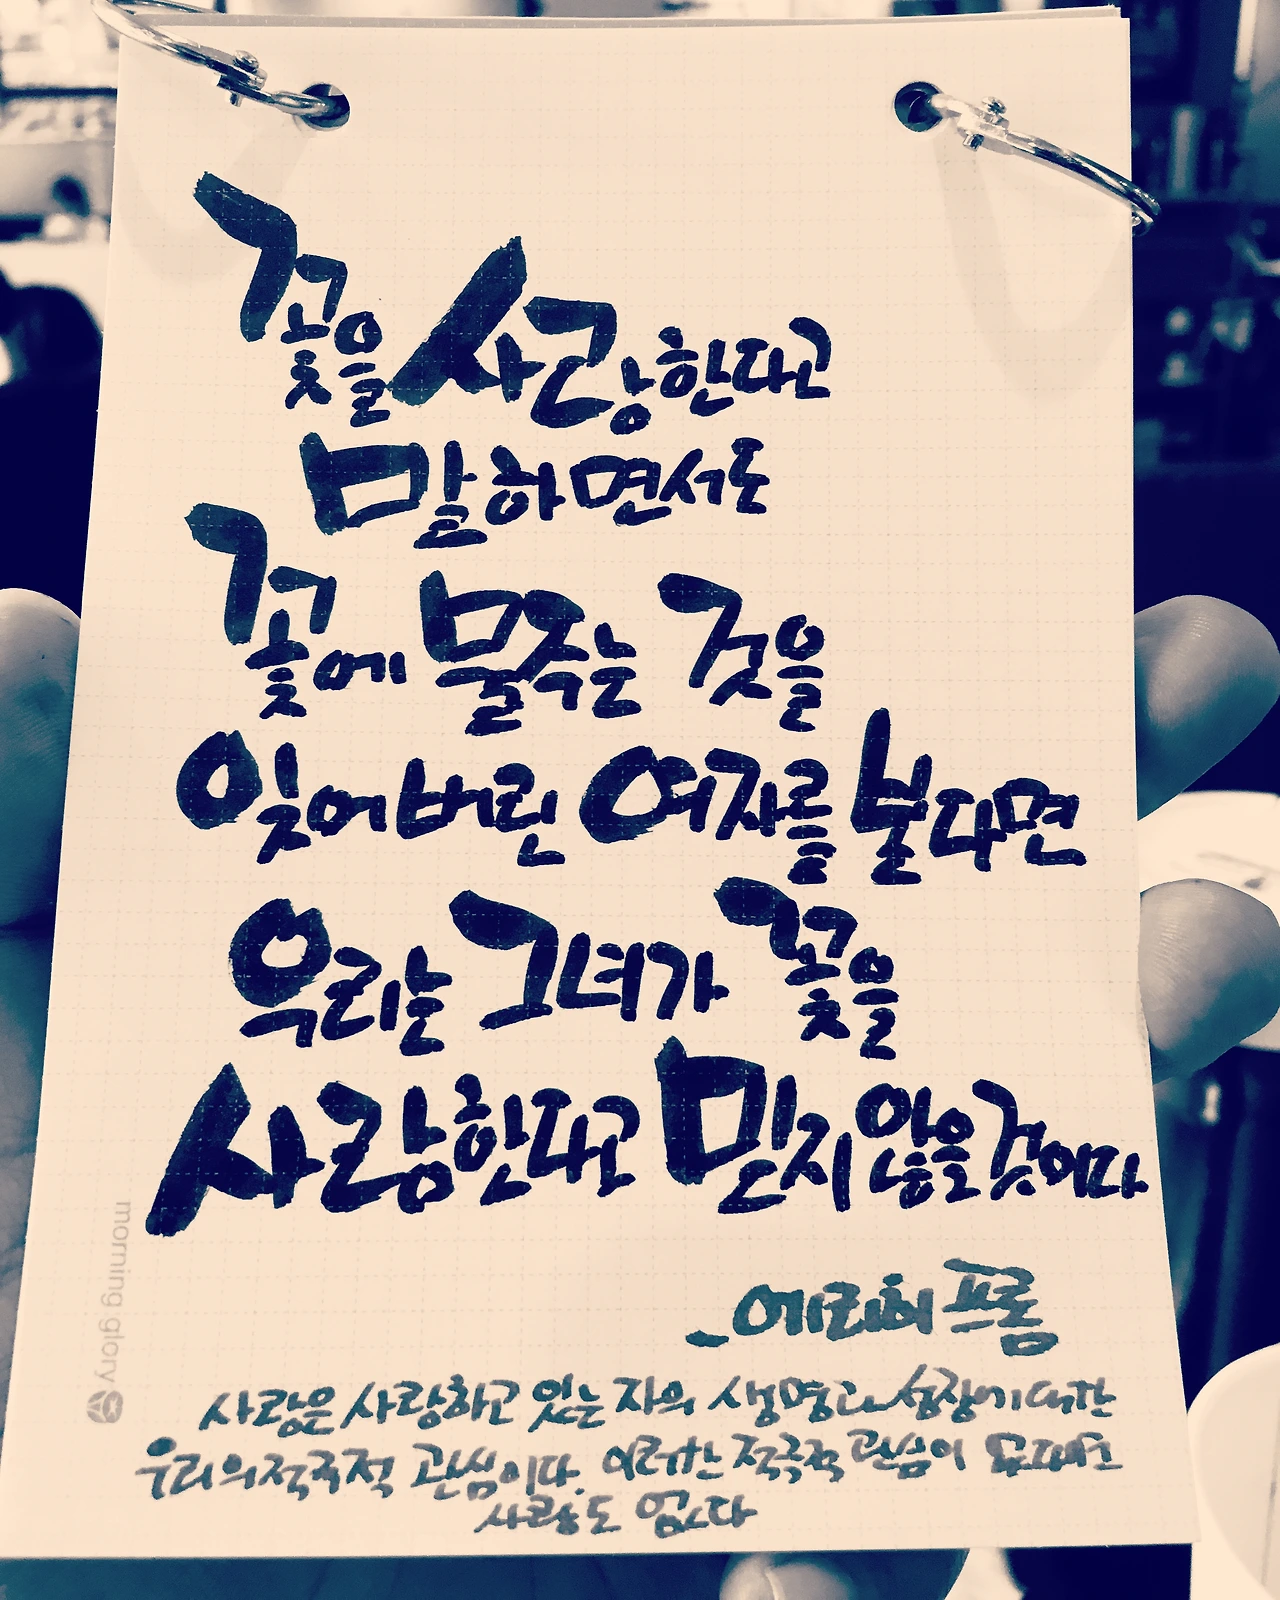 꽃을 사랑한다고
말하면서도
꽃에 물주는 것을
잊어버린 여자를 본다면
우리는 그녀가 꽃을
사랑한다고 믿지 않을것이다
_에리히 프롬
사랑은 사랑하고 있는 자의 생명과 성장에 대한
우리의 적극적 관심이다. 이러한 적극적 관심이 없다면
사랑도 없다
morning glory